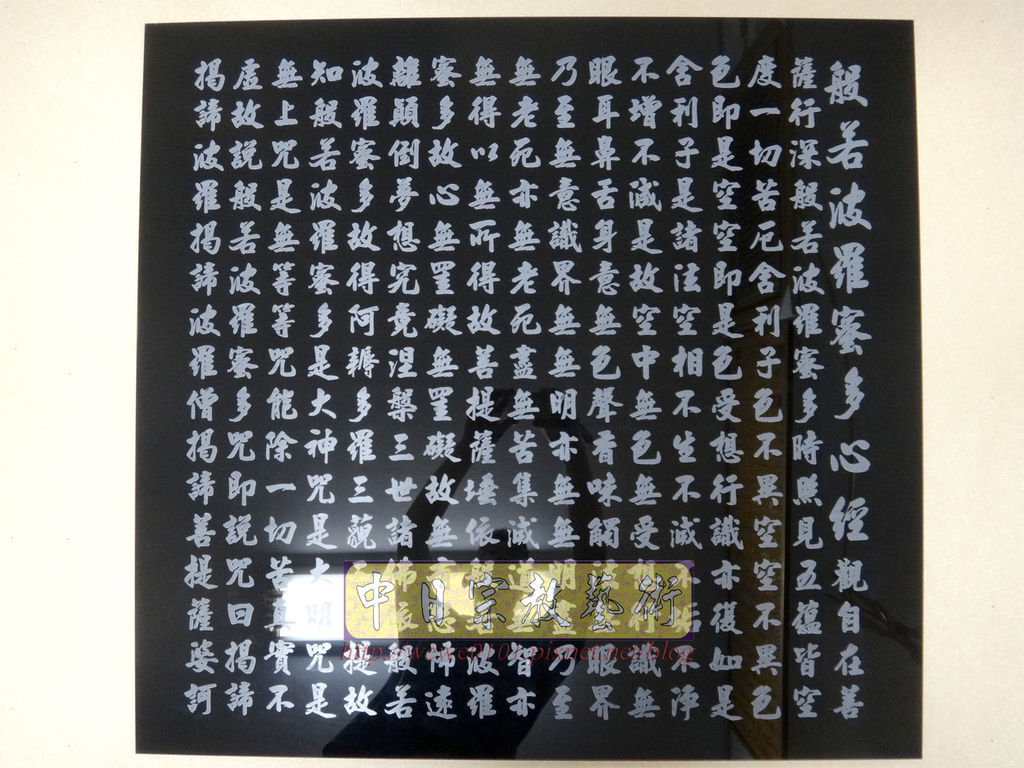 般若波羅蜜多心經觀自在菩
薩行深般若波羅蜜多時照見五蘊皆空
度一切苦厄舍利子色不異空空不異色
色即是空空即是色受想行識亦復如是
舍利子是諸法空相不生不滅不垢不淨
不增不減是故空中無色無受想行識無
眼耳鼻舌身意無色聲香味觸法無眼界
乃至無意識界無無明亦無無明盡乃至
無老死亦無老死盡無苦集滅道無智亦
無得以無所得故菩提薩埵依般若波羅
蜜多故心無罣礙無罣礙故無有恐怖遠
離顛倒夢想究竟涅槃三世諸佛依般若
波羅蜜多故得阿耨多羅三藐三提故
知般若波羅蜜多是大神咒是大明咒是
無上咒是無等等咒能除一切苦真實不
虛故說般若波羅蜜多咒即說咒曰揭諦
揭諦波羅揭諦波羅僧揭諦菩提薩婆訶
中日宗教藝術